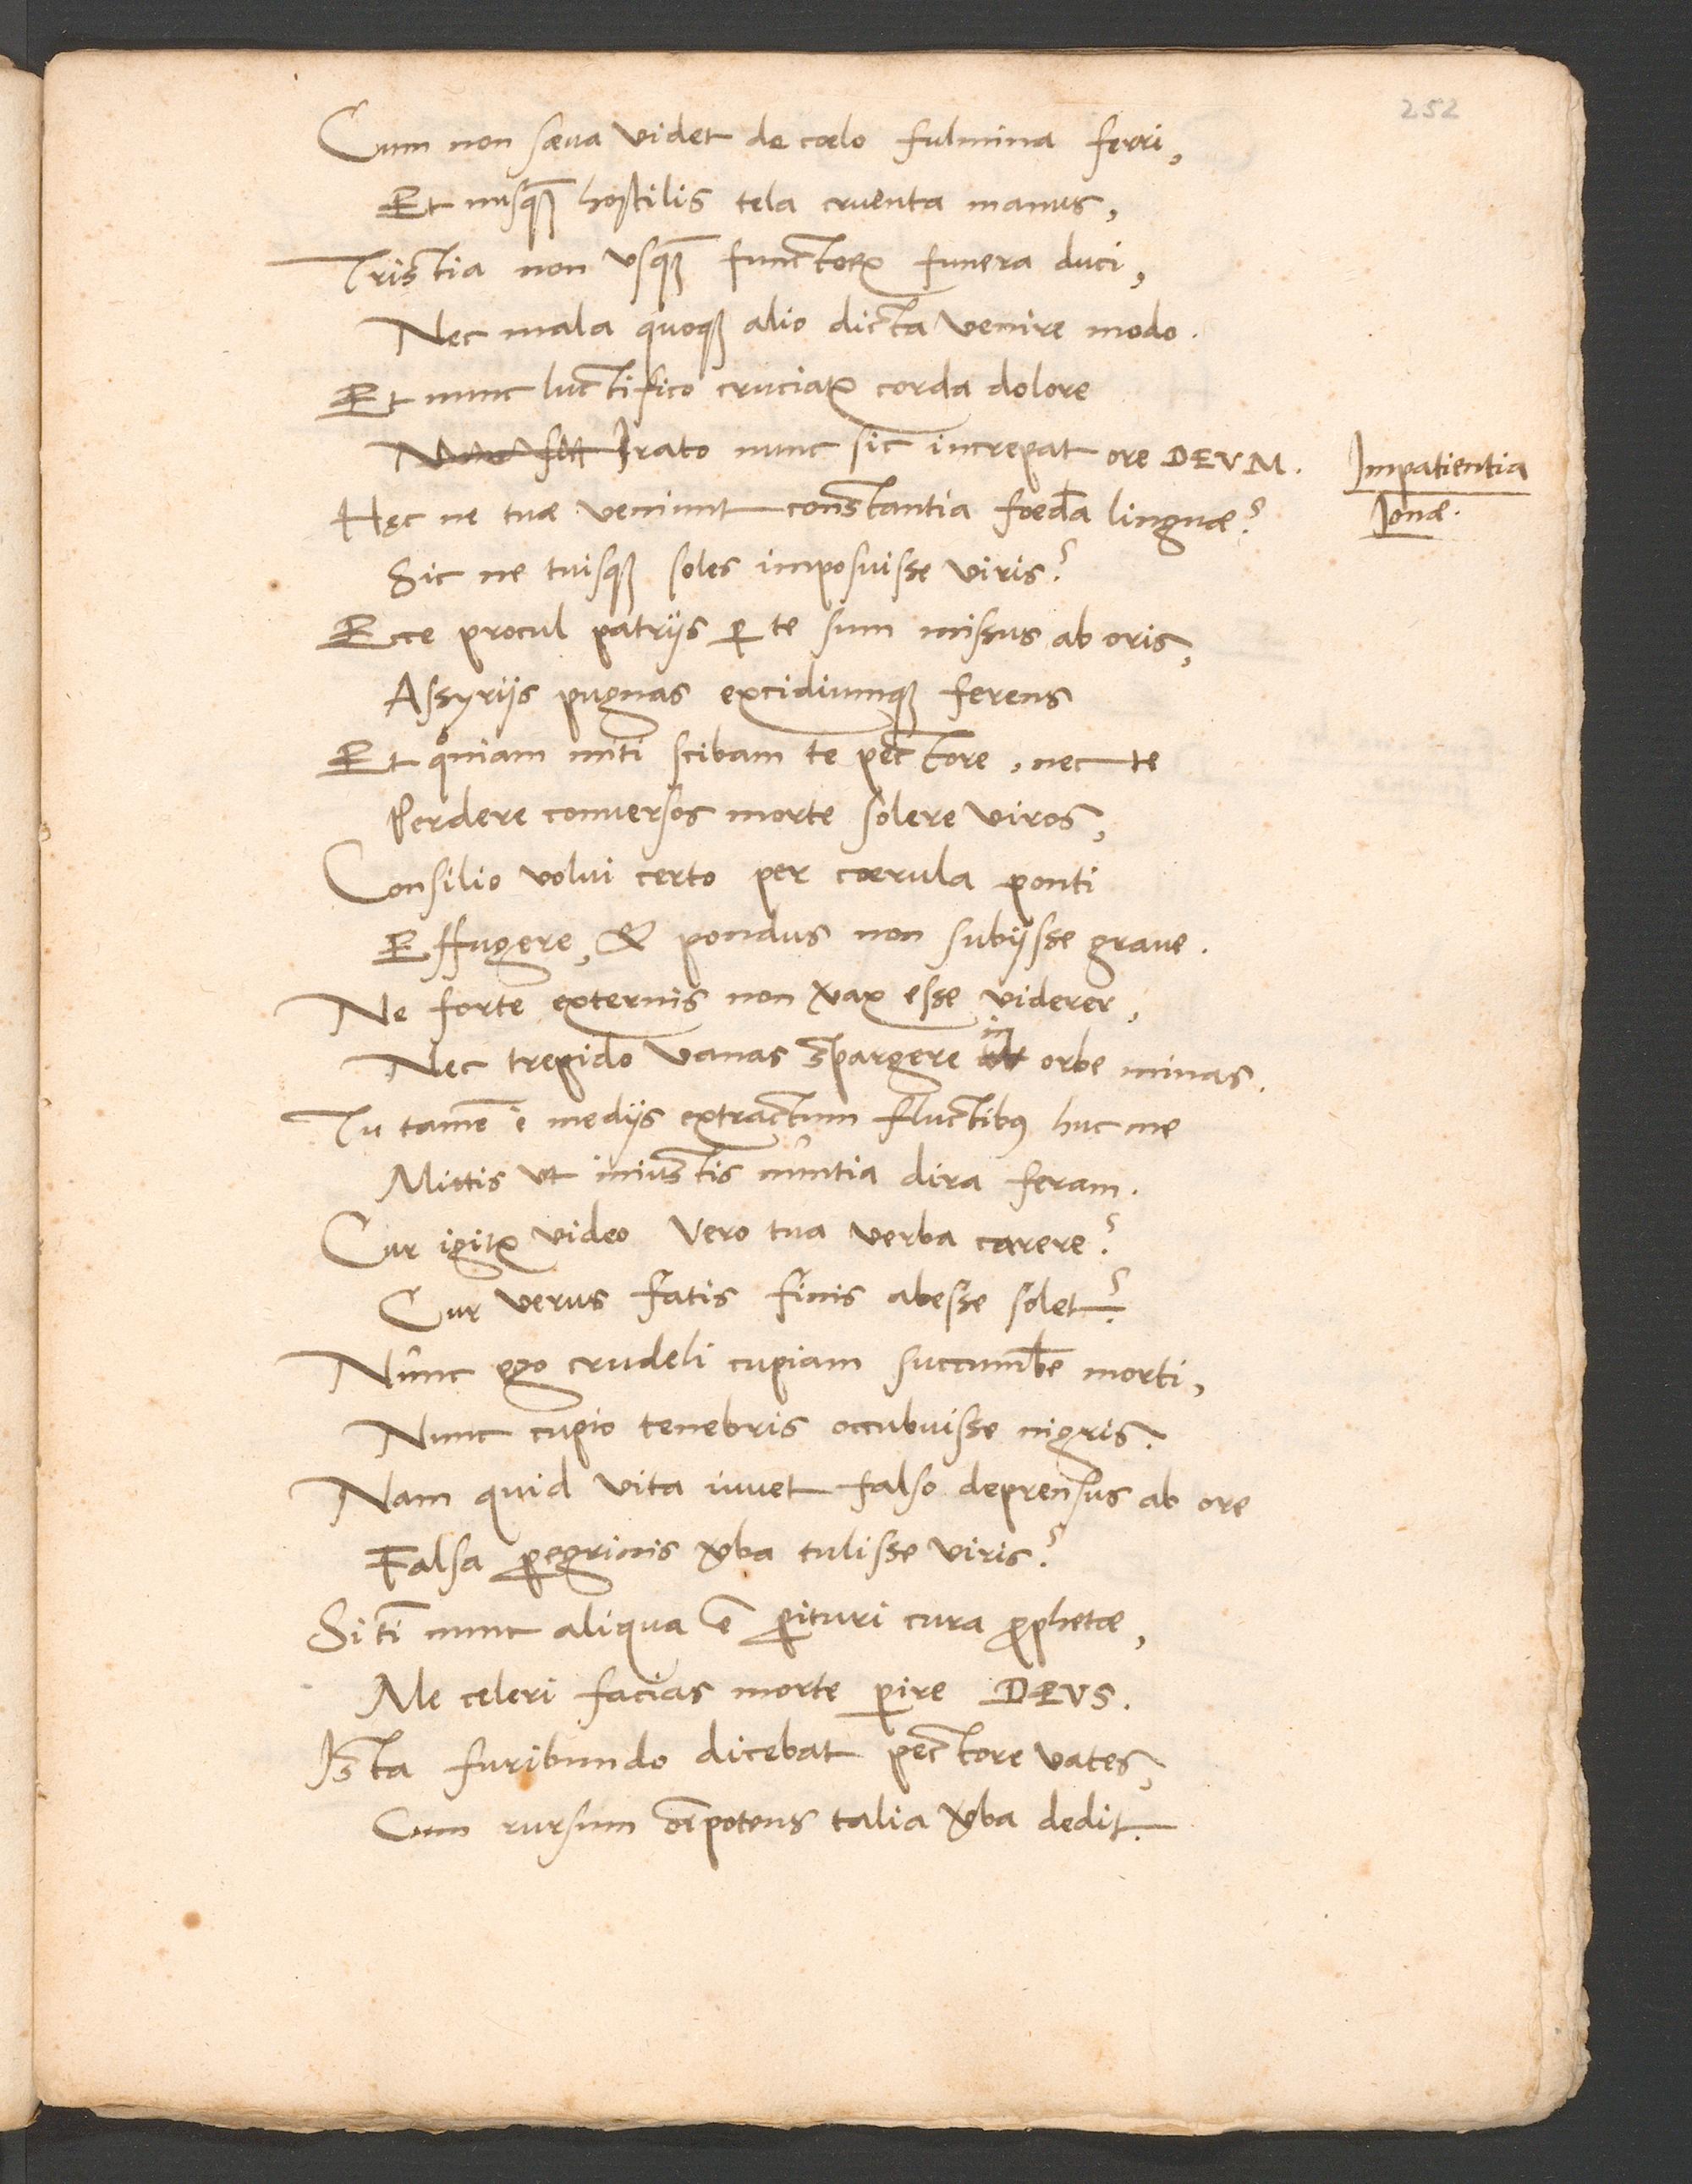 252
Cum non sæua videt de cœlo fulmina ferri,
Et nusq̃ hostilis tela cruenta manus,
Tristia non vsq̃ functoꝝ funera duci,
Nec mala quoqꝫ alio dicta venire modo.
Et nunc luctifico cruciatꝰ corda dolore
Irato nunc sic increpat ore DEVM.
Impatientia
Ionæ.
Hęc ne tuæ veniunt constantia foedera linguæ?
Sic ne tuisqꝫ soles imposuisse viris?
Ecce procul patrijs ꝑ te sum missus ab oris,
Assyrijs pugnas excidiumqꝫ ferens
Et qoniam miti scibam te pectore, nec te
Perdere conuersos morte solere viros,
Consilio volui certo per cœrula ponti
Effugere, & pondus non subijsse graue.
Ne forte externis non verax esse viderer,
Nec trepido vanas spargere in orbe minas.
Tu tamē ē medijs extractum fluctibꝰ huc me
Mittis vt iniustis nuntia dira feram.
Cur igitꝛ video vero tua verba carere?
Cur verus fatis finis abesse solet?
Nunc ego crudeli cupiam succumbe᷒ morti,
Nunc cupio tenebris occubuisse nigris.
Nam quid vita iuuet falso deprensus ab ore
Falsa ꝑegrinis vba tulisse viris?
Si tī nunc aliqua ē ꝑituri cura ꝓphetæ,
Me celeri facias morte ꝑire DEVS.
Ista furibundo dicebat pectore vates,
Cum rursum oīpotens talia vba dedit.